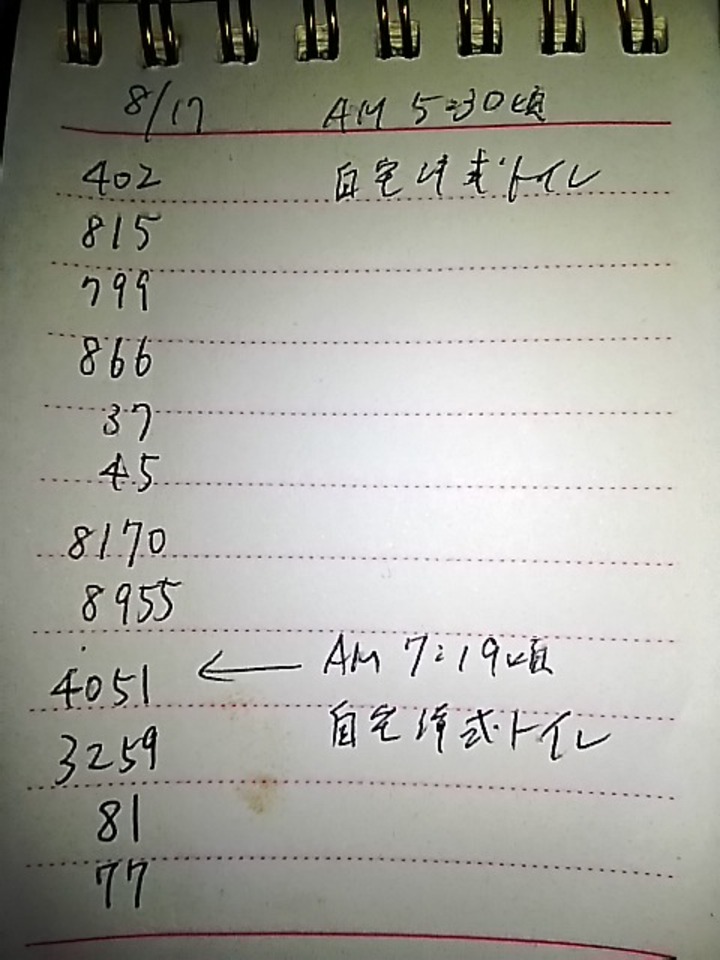 8/17 AM 5:30頃
402 自宅洋式トイレ
815
799
866
37
45
8170
8955
4051 ← AM 7:19頃
自宅洋式トイレ
3259
81
77